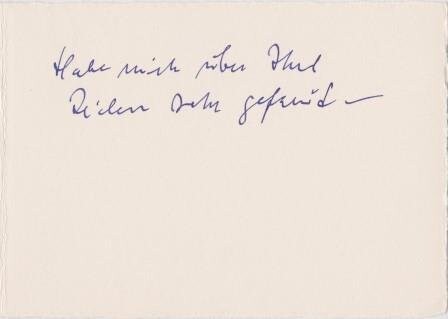 Habe mich über Ihre
Zeilen sehr gefreut –